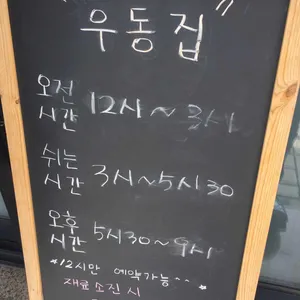 "우동집"
오전 시간 12시~3시
쉬는 시간 3시~5시30
오후 시간 5시30~9시
*12시만 예약가능..*
재료 소진 시